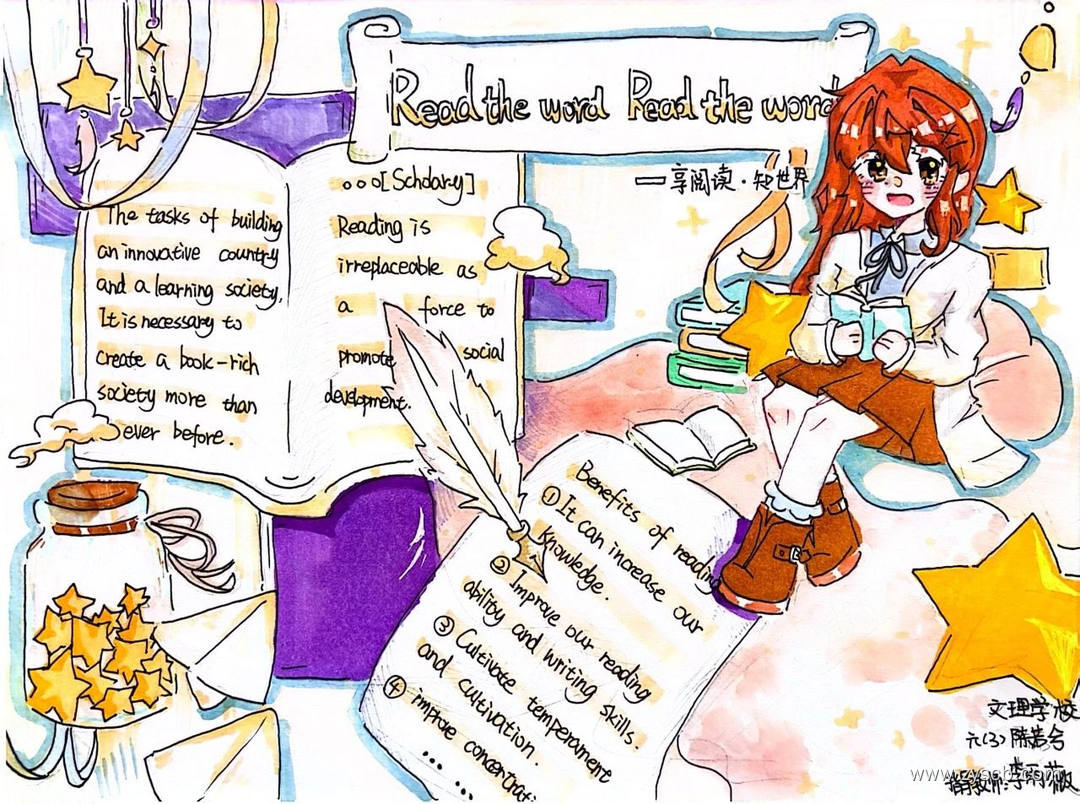 Read the word Read the word
一享阅读·知世界
The tasks of building
an innovative country
and a learning society,
It is necessary to
create a book-rich
society more than
ever before.
[Schdary]
Reading is
irreplaceable as
a force to
promote social
development.
Benefits of reading
① It can increase our
knowledge.
② Improve our reading
ability and writing skills.
③ Cultivate temperament
and cultivation.
④ improve concentrati
......
文理学校
六(3)陈
李雨薇